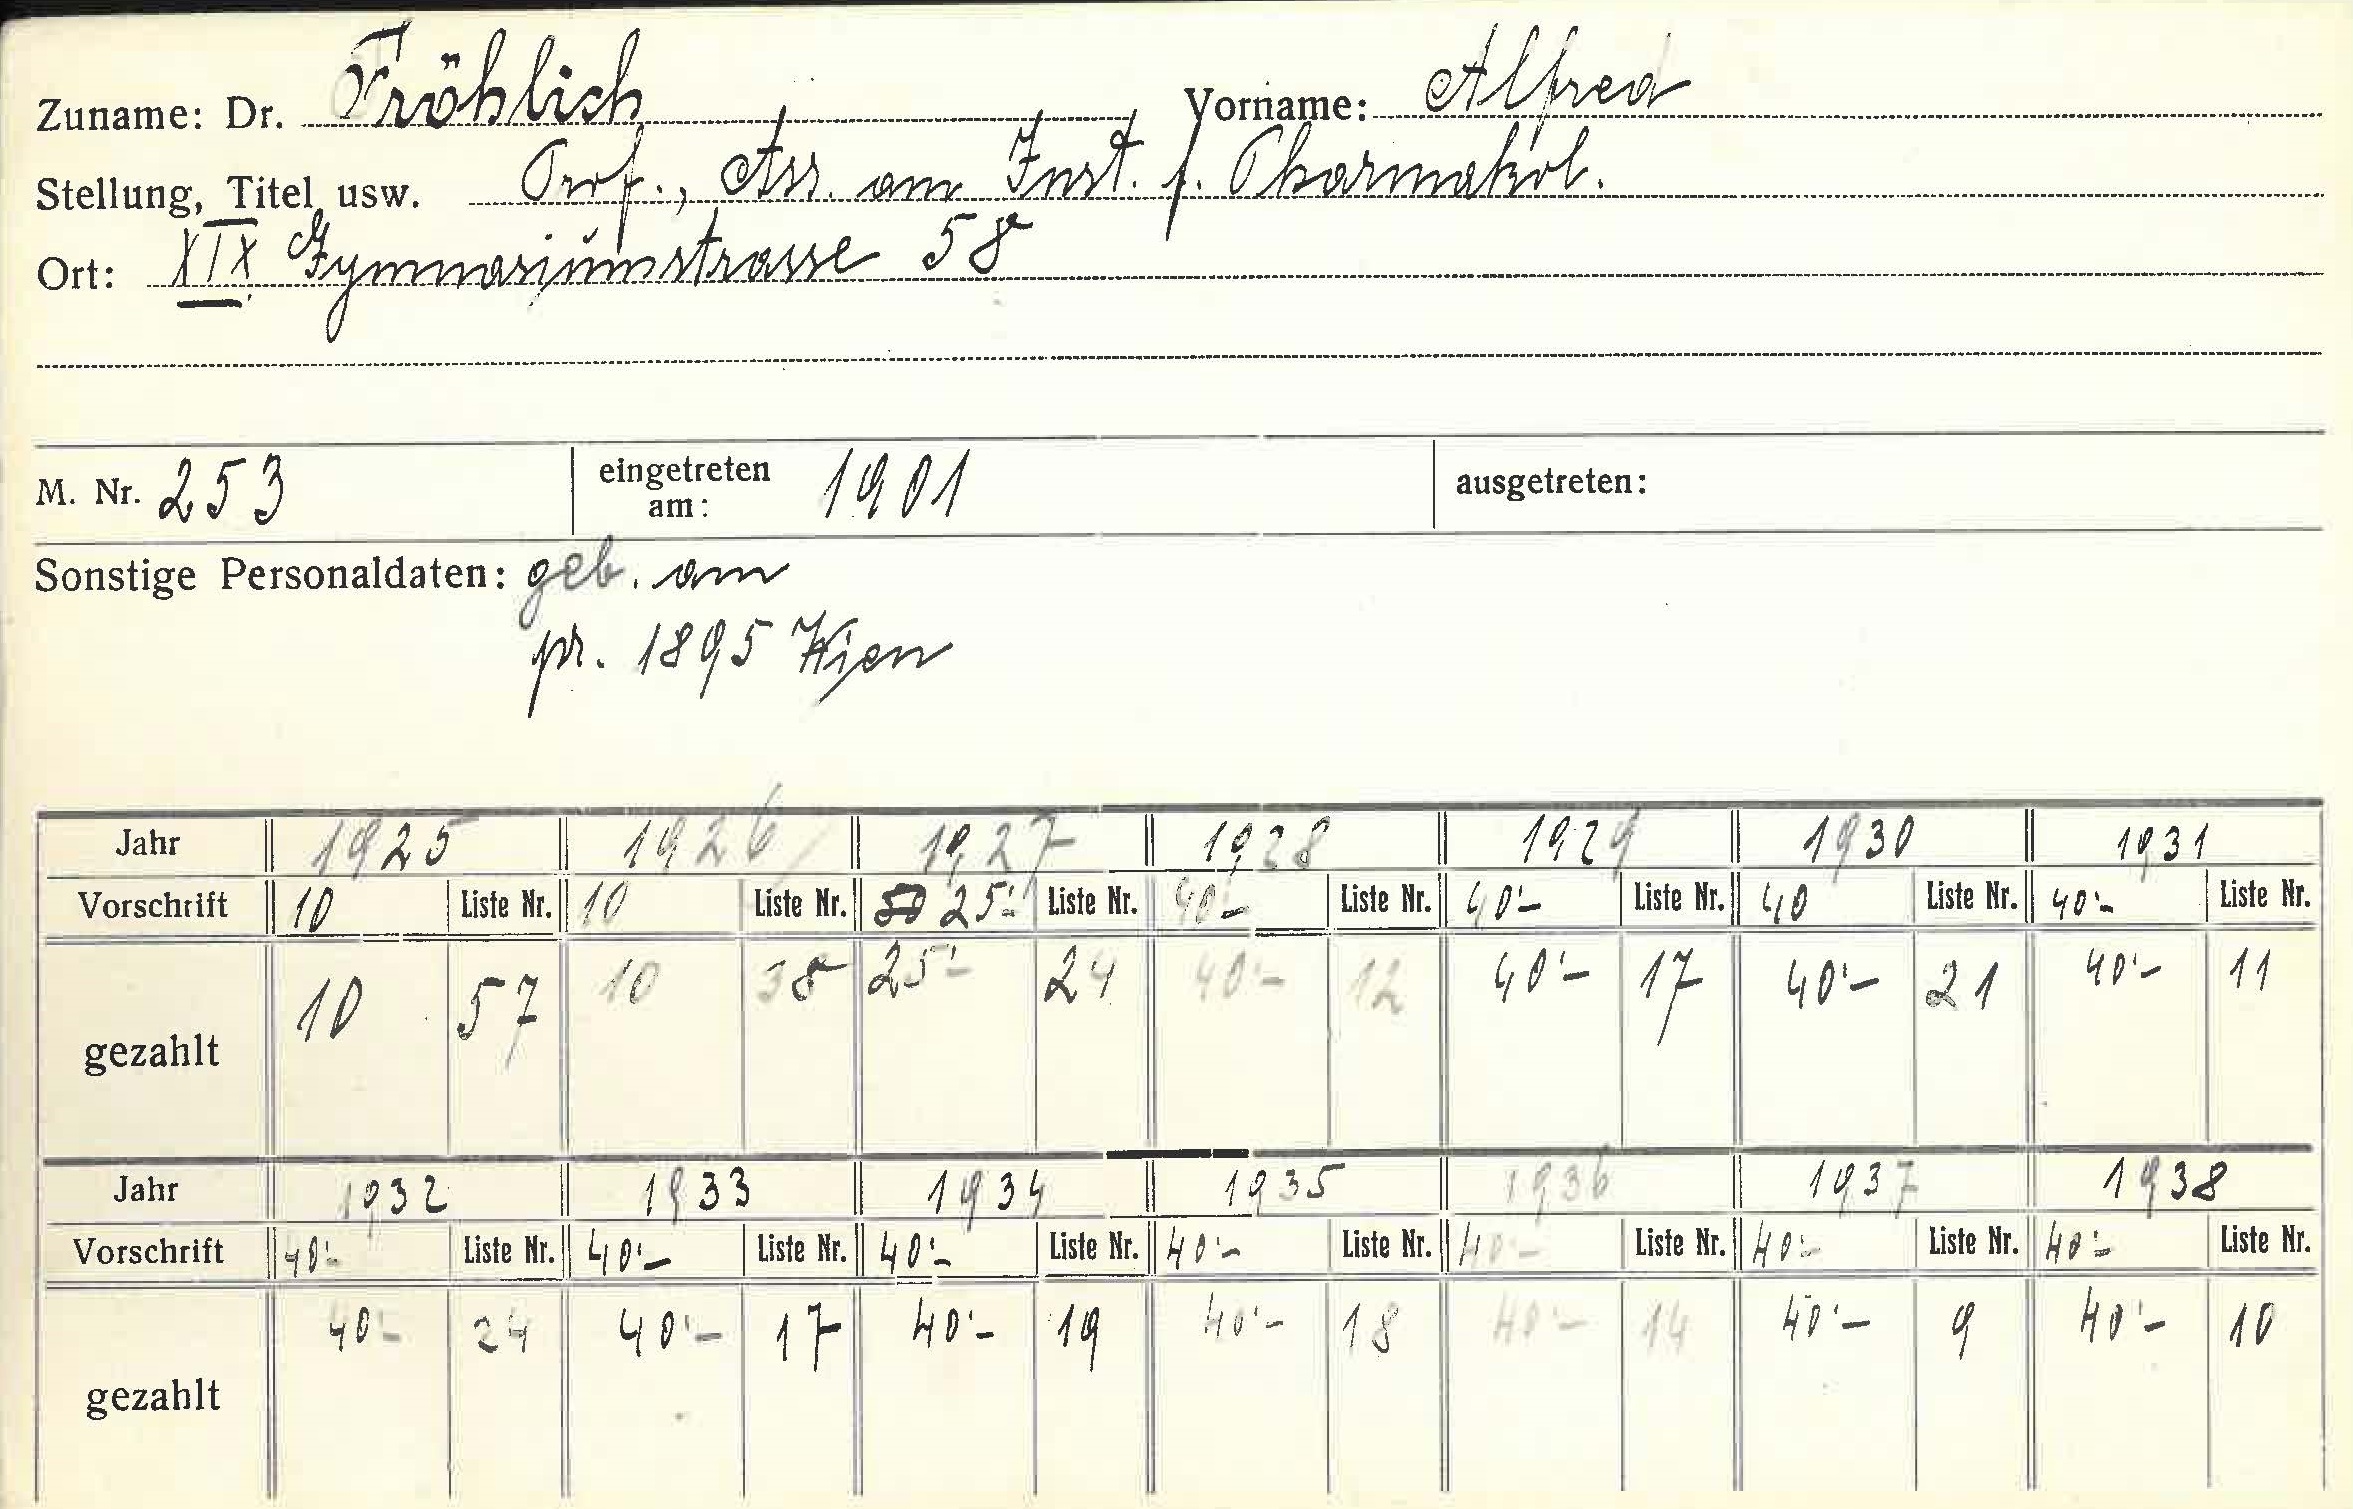 Zuname: Dr. Fröhlich Vorname: Alfred
Stellung, Titel usw. Prof., Ass. am Inst. f. Pharmakol.
Ort: XIX Gymnasiumstrasse 58
M. Nr. 253 eingetreten am: 1901 ausgetreten:
Sonstige Personaldaten: geb. am
pr. 1895 Wien
Jahr 1925 1926 1927 1928 1929 1930 1931
Vorschrift 10 Liste Nr. 10 Liste Nr. 50 25'- Liste Nr. 40- Liste Nr. 40'- Liste Nr. 40 Liste Nr. 40'- Liste Nr.
gezahlt 10 57 10 38 25'- 24 40'- 12 40'- 17 40'- 21 40'- 11
Jahr 1932 1933 1934 1935 1936 1937 1938
Vorschrift 40'- Liste Nr. 40'- Liste Nr. 40'- Liste Nr. 40'- Liste Nr. 40'- Liste Nr. 40'- Liste Nr. 40'- Liste Nr.
gezahlt 40- 24 40'- 17 40'- 19 40'- 18 40'- 14 40'- 9 40'- 10